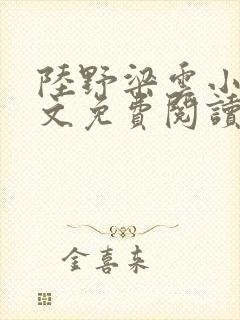 陸野梁雲小
文免費閱讀
金喜来